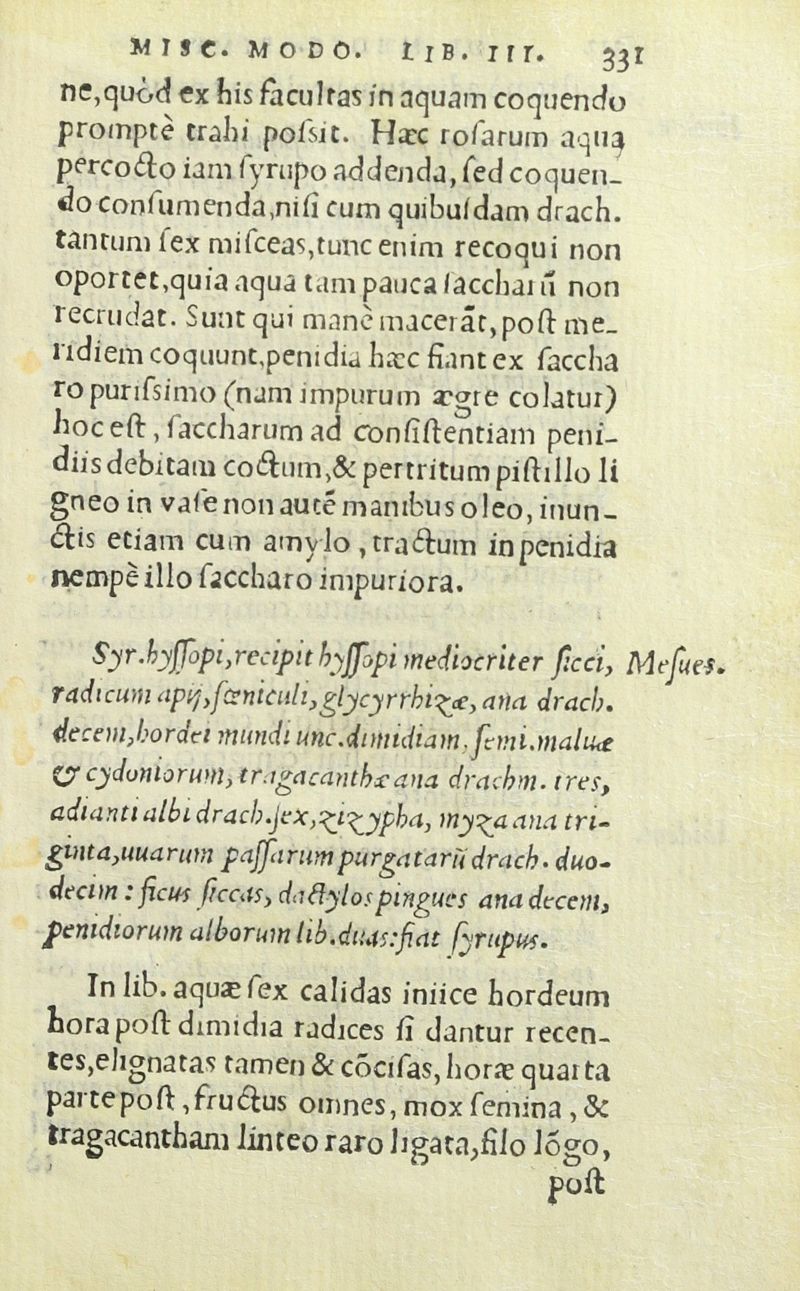 MISC. MODO. LIB. III. 331
ne,quòd ex his facultas in aquam coquendo
promptè trahi poſsit. Hæc roſarum aqua
percocto iam ſyrupo addenda, ſed coquen-
do conſumenda,niſi cum quibuſdam drach.
tantum ſex miſceas,tunc enim recoqui non
oportet,quia aqua tam pauca ſaccharū non
recrudat. Sunt qui manè macerāt, poſt me-
ridiem coquunt,penidia hæc fiant ex ſaccha
ro puriſsimo (nam impurum ægre colatur)
hoc eſt, ſaccharum ad conſiſtentiam peni-
diis debitam coctum,& pertritum piſtillo li
gneo in vaſe non autē manibus oleo, inun-
ctis etiam cum amylo, tractum in penidia
nempè illo ſaccharo impuriora.
Syr.hyſſopi,recipit hyſſopi mediocriter ſicci, Meſues.
radicum apij,fœniculi,glycyrrhizæ, ana drach.
decem,hordei mundi unc.dimidiam, ſemi.maluæ
& cydoniorum, tragacanthæ ana drachm. tres,
adianti albi drach.ſex,zizypha, myxa ana tri-
ginta,uuarum paſſarum purgatarū drach. duo-
decim : ficus ſiccas, dactylos pingues ana decem,
penidiorum alborum lib.duas:fiat ſyrupus.
In lib. aquæ ſex calidas iniice hordeum
hora poſt dimidia radices ſi dantur recen-
tes,elignatas tamen & cōciſas, horæ quarta
parte poſt, fructus omnes, mox ſemina, &
tragacantham linteo raro ligata,filo lōgo,
poſt